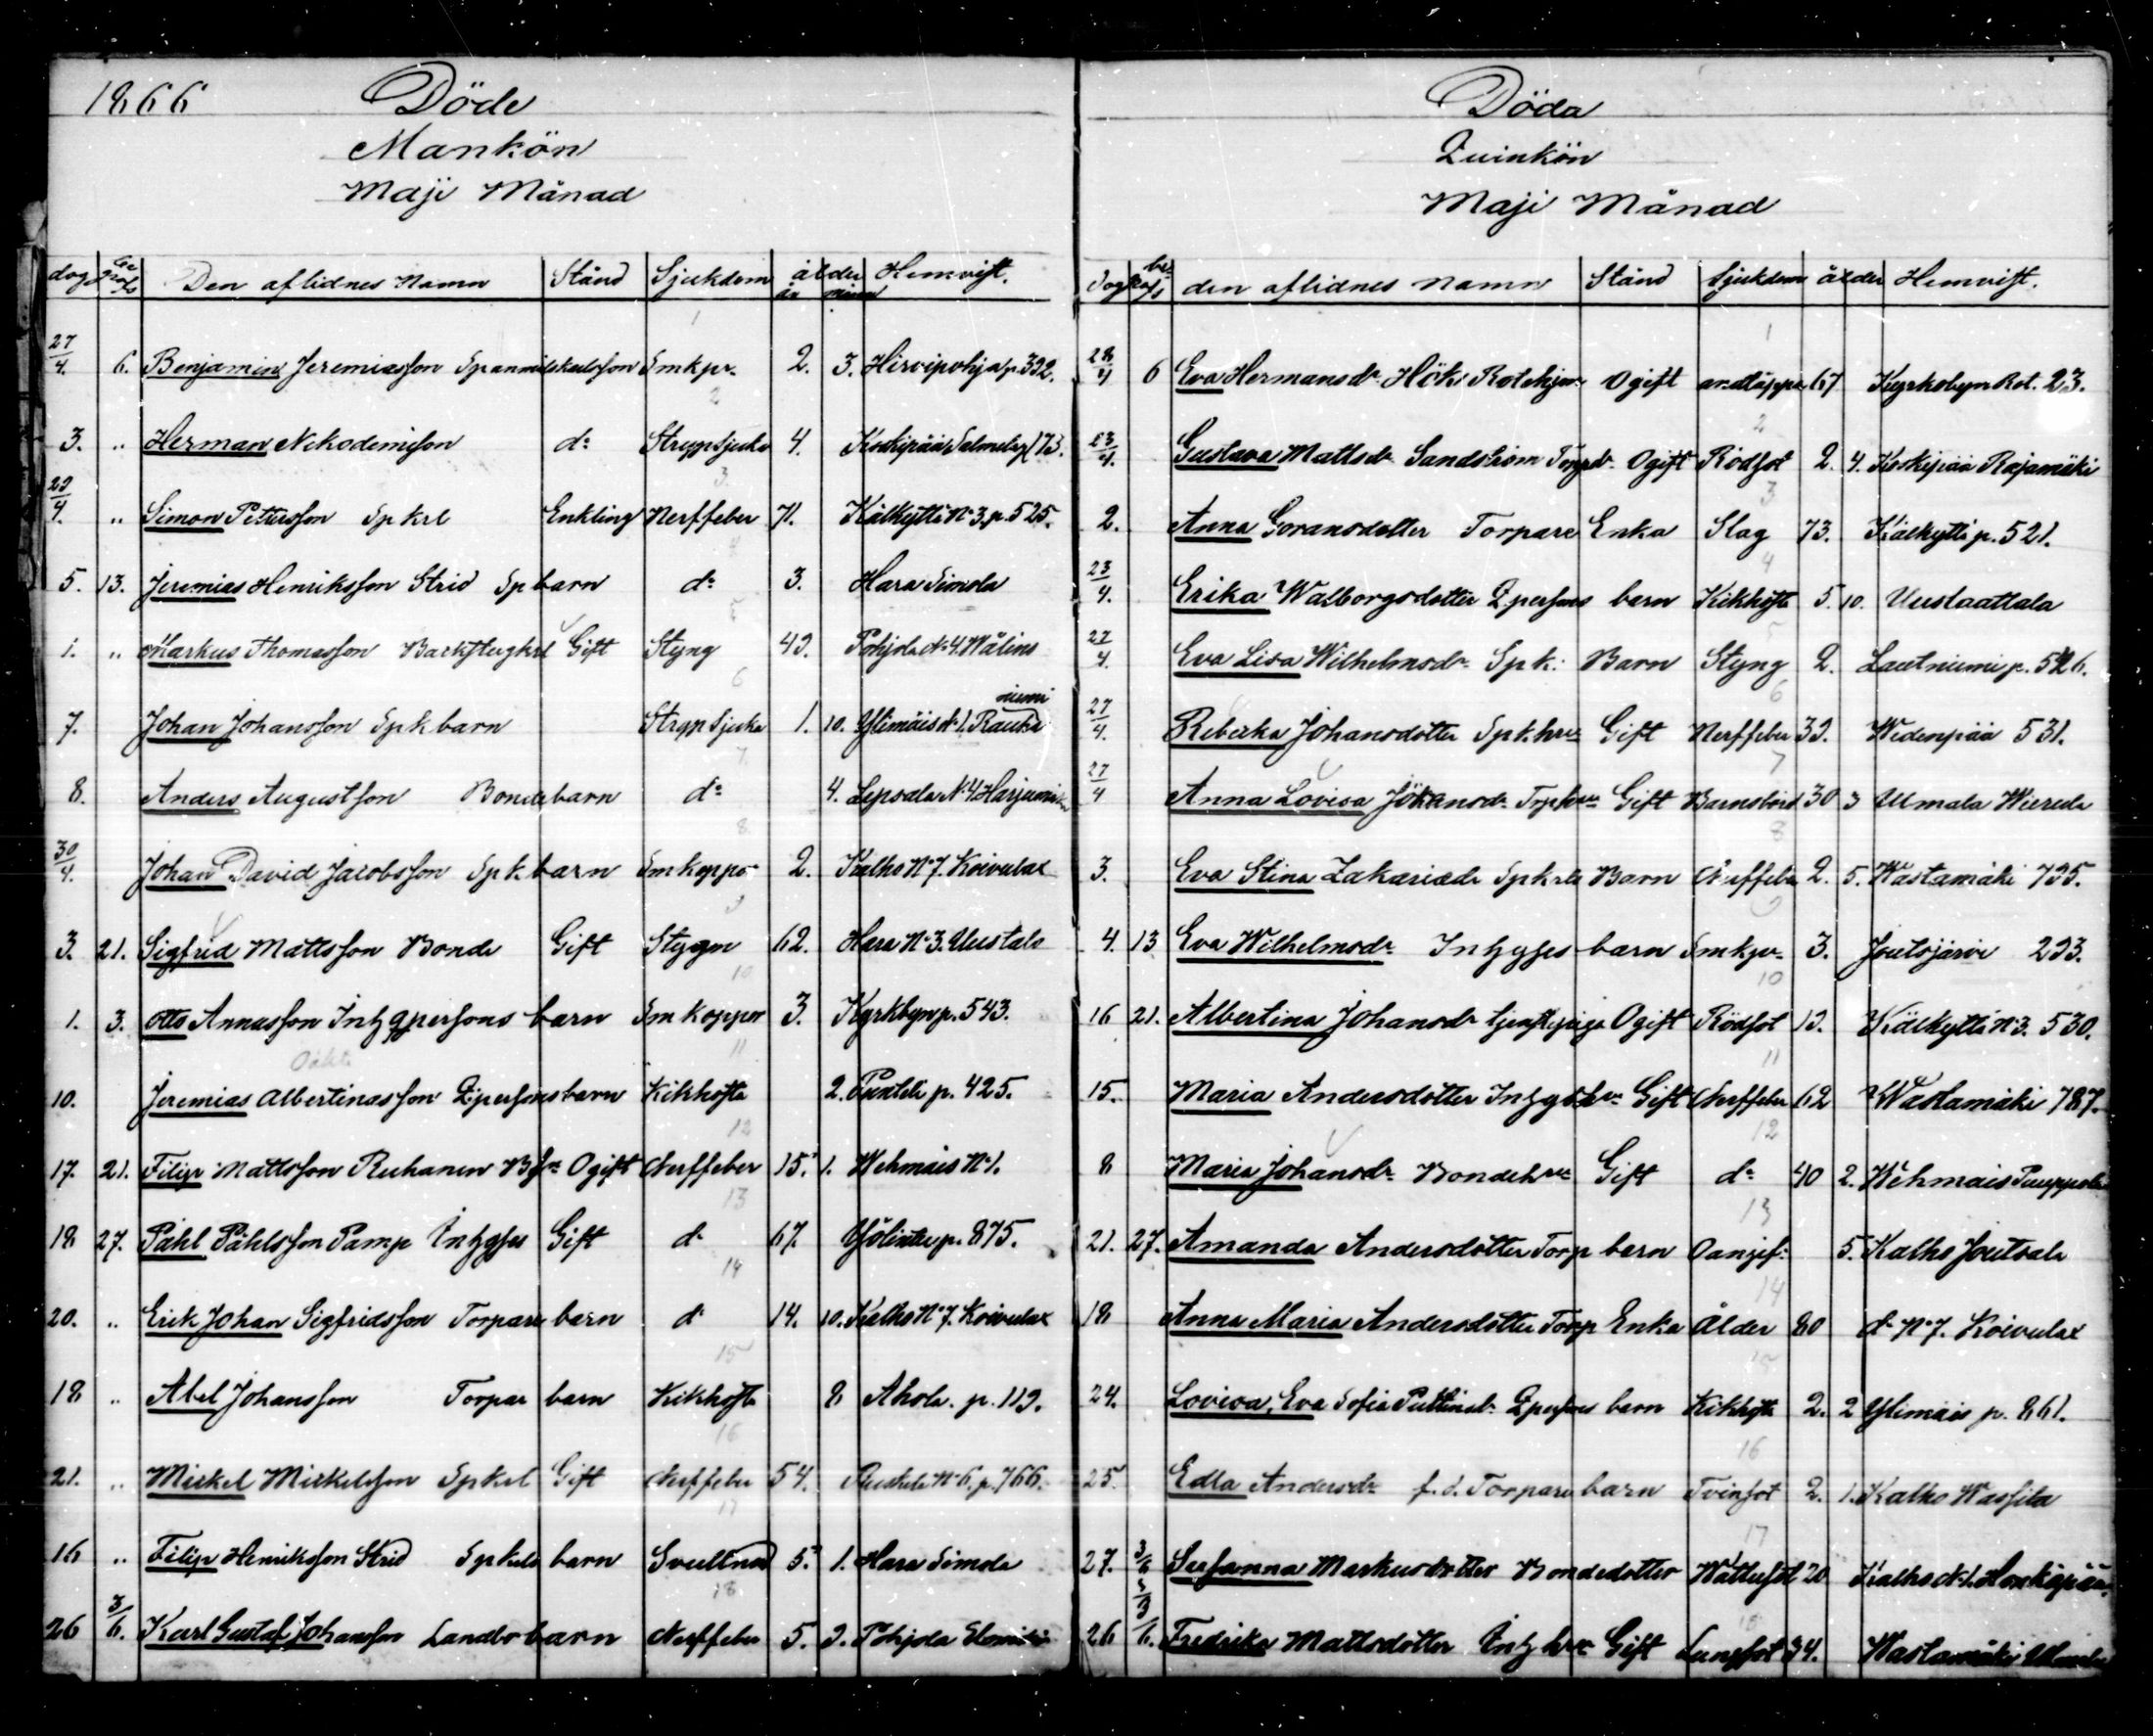 1866
Döde
Mankön
Maji Månad
dog begrafs Den aflidnes Namn Stånd Sjukdom ålder år mån Hemvist.
1
27/4. 6. Benjamin Jeremiasson Spanmålskarlsson Smkpr. 2. 3. Hirvipohja p. 392.
2
3. " Herman Nikodemison do Strypsjuka 4. Koskipää Salmela 173.
3.
29/4. " Simon Pettersson Spkrl Enkling Nerffeber 71. Kälkyttä No 3. p. 525.
4
5. 13. Jeremias Henriksson Strid Sp barn do 3. Hara Simola
5
1. " Markus Thomasson Backstugkrl Gift Styng 49. Pohjola No 4. Wälins
6
7. Johan Johansson Spk barn Strypsjuka 1. 10. Ylimäis No 1. Rauha niemi
7.
8. Anders Augustson Bonde barn do 4. Lepsala No 4
8.
30/4. Johan David Jacobsson Spk barn Smkoppor 2. Kalho No 7. Koivulax
9
3. 21. Sigfrid Mattsson Bonde Gift Stygn 62. Hara No 3. Uustalo
10
1. 3. Otto Annasson Inhysperfons barn Smkoppor 3. Kyrkbyn p. 543.
11
10. Jeremias Albertinasson Qpersons barn Kikhosta 2. p. 425.
12
17. 21. Filip Mattsson Reihanen Ogift Nerffeber 15. 1. Wehmais No 1.
13
18 27. Påhl Påhlsson Pamp Inhyses Gift do 67. p. 875.
14
20. " Erik Johan Sigfridsson Torpare barn do 14. 10. Kalho No 7. Koivulax
15
18 " Abel Johansson Torpar barn Kikhosta 8 Ahola. p. 119.
16
21. " Mickel Mickelsson Spkrl Gift Nerffeber 54. No 6. p. 766.
17
16 " Filip Henriksson Strid Spkarls barn Svullnad 5. 1. Hara Simola
18
26 3/6. Karl Gustaf Johansson Landbo barn Nerffeber 5. 9. Pohjola
Döda
Quinkön
Maji Månad
dog begrafs den aflidnes namn Stånd Sjukdom ålder Hemvist.
1
28/4 6 Eva Hermansdr Hök Rotehjon Ogift andtäppa 67 Kyrkobyn Rot. 23.
2
23/4. Gustava Mattsdr Sandström Torpdr Ogift Rödsot 2. 4. Koskipää Rajamäki
3
2. Anna Göransdotter Torpare Enka Slag 73. Kälkyttä p. 521.
4
23/4. Erika Walborgsdotter Qpersons barn Kikhosta 5. 10. Uustaattala
5
27/4. Eva Lisa Wilhelmsdr Spk: Barn Styng 2. Lautniemi p. 526.
6
27/4. Rebecka Johansdotter Spkhru Gift Nerffeber 39. Wedenpää 531.
7
27/4 Anna Lovisa Johansdr Torphru Gift Barnsbörd 30 3 Ulmala Wierula
8
3. Eva Stina Zakariædr Spkrls Barn Nerffeber 2. 5. Wastamäki 795.
9
4. 13 Eva Wilhelmsdr Inhyses barn Smkpr 3. Joutsjärvi 293.
10
16 21. Albertina Johansdr tjenstepiga Ogift Rödsot 19. Kälkyttä No 3. 530.
11
15. Maria Andersdotter Inhyshru Gift Nerffeber 62 Wastamäki 787.
12
8 Maria Johansdr Bondehru Gift do 40 2. Wehmais Puuppola
13
21. 27. Amanda Andersdotter Torp barn Oangif: 5. Kalho Joutsala
14
18 Anna Maria Andersdotter Torp Enka Ålder 80 do No 7. Koivulax
15
24. Lovisa, Eva Sofia Qpersons barn Kikhosta 2. 2 Ylimäis p. 861.
16
25. Edla Andersdr f. d. Torpare barn Tvinsot 2. 1. Kalho Wassila
17
27. 3/6 Susanna Markusdotter Bondedotter Wattusot 20 Kalho No 1. Honkapää
18
26 3/6. Fredrika Mattsdotter Inhhru Gift Lungsot 34. Wastamäki Ulmala